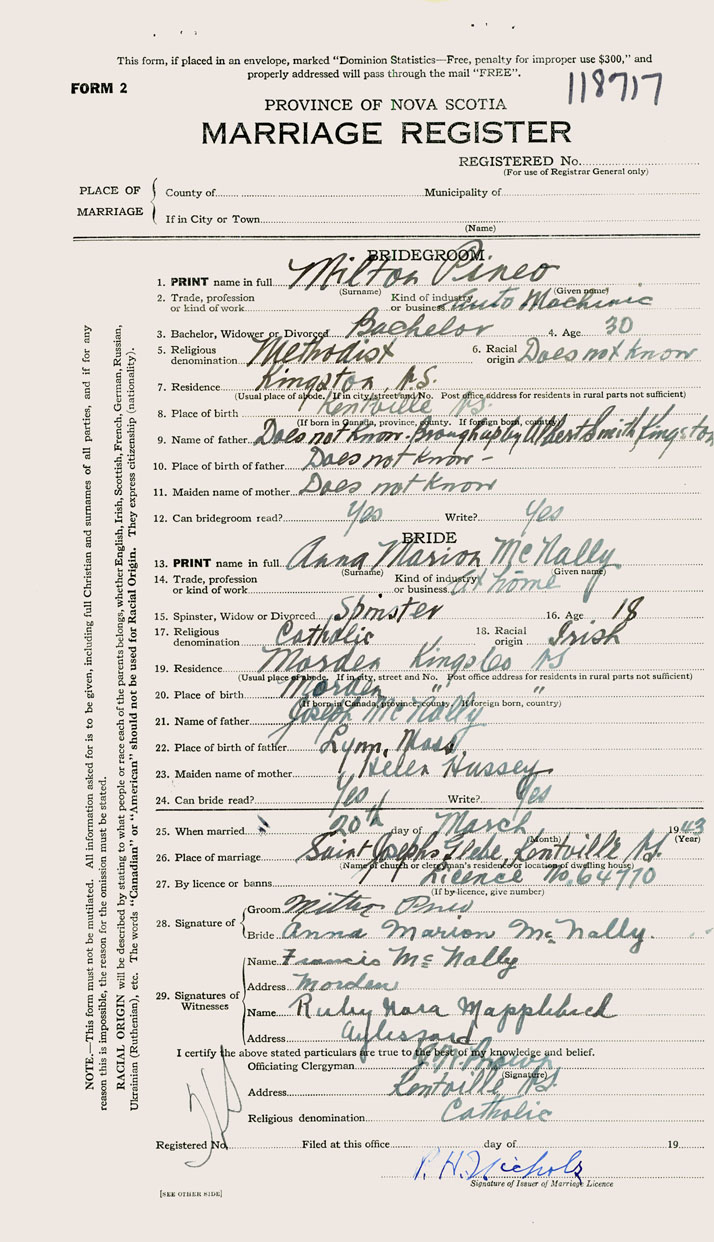 This form, if placed in an envelope, marked “Dominion Statistics—Free, penalty for improper use $300,” and
properly addressed will pass through the mail “FREE”.
FORM 2
118717
PROVINCE OF NOVA SCOTIA
MARRIAGE REGISTER
REGISTERED No.
(For use of Registrar General only)
PLACE OF MARRIAGE
County of Municipality of
If in City or Town
(Name)
BRIDEGROOM
1. PRINT name in full Milton Pineo
(Surname) (Given name)
2. Trade, profession or kind of work Kind of industry or business Auto Machinic
3. Bachelor, Widower or Divorced Bachelor 4. Age 30
5. Religious denomination Methodist 6. Racial origin Does not know
7. Residence Kingston, N.S.
(Usual place of abode. If in city, street and No. Post office address for residents in rural parts not sufficient)
8. Place of birth Kentville N.S.
(If born in Canada, province, county. If foreign born, country)
9. Name of father Does not know - Brought up by Albert Smith Kingston
10. Place of birth of father Does not know -
11. Maiden name of mother Does not know
12. Can bridegroom read? Yes Write? Yes
BRIDE
13. PRINT name in full Anna Marion McNally
(Surname) (Given name)
14. Trade, profession or kind of work Kind of industry or business At home
15. Spinster, Widow or Divorced Spinster 16. Age 18
17. Religious denomination Catholic 18. Racial origin Irish
19. Residence Morden Kings Co NS
(Usual place of abode. If in city, street and No. Post office address for residents in rural parts not sufficient)
20. Place of birth Morden " "
(If born in Canada, province, county. If foreign born, country)
21. Name of father Joseph McNally
22. Place of birth of father Lynn, Mass
23. Maiden name of mother Helen Hussey
24. Can bride read? Yes Write? Yes
25. When married 20th day of March 1943
(Month) (Year)
26. Place of marriage Saint Josephs Glebe, Kentville N.S.
(Name of church or clergyman's residence or location of dwelling house)
27. By licence or banns Licence No. 64770
(If by licence, give number)
28. Signature of
Groom Milton Pineo
Bride Anna Marion McNally.
29. Signatures of Witnesses
Name Francis McNally
Address Morden
Name Ruby Nora Mapplebeck
Address Aylesford
I certify the above stated particulars are true to the best of my knowledge and belief.
Officiating Clergyman J.H. Brown
(Signature)
Address Kentville N.S.
Religious denomination Catholic
Registered No. Filed at this office day of 19
P. H. Nichols
Signature of Issuer of Marriage Licence
[SEE OTHER SIDE]
NOTE.—This form must not be mutilated. All information asked for is to be given, including full Christian and surnames of all parties, and if for any
reason this is impossible, the reason for the omission must be stated.
RACIAL ORIGIN will be described by stating to what people or race each of the parents belongs, whether English, Irish, Scottish, French, German, Russian,
Ukrainian (Ruthenian), etc. The words “Canadian” or “American” should not be used for Racial Origin. They express citizenship (nationality).